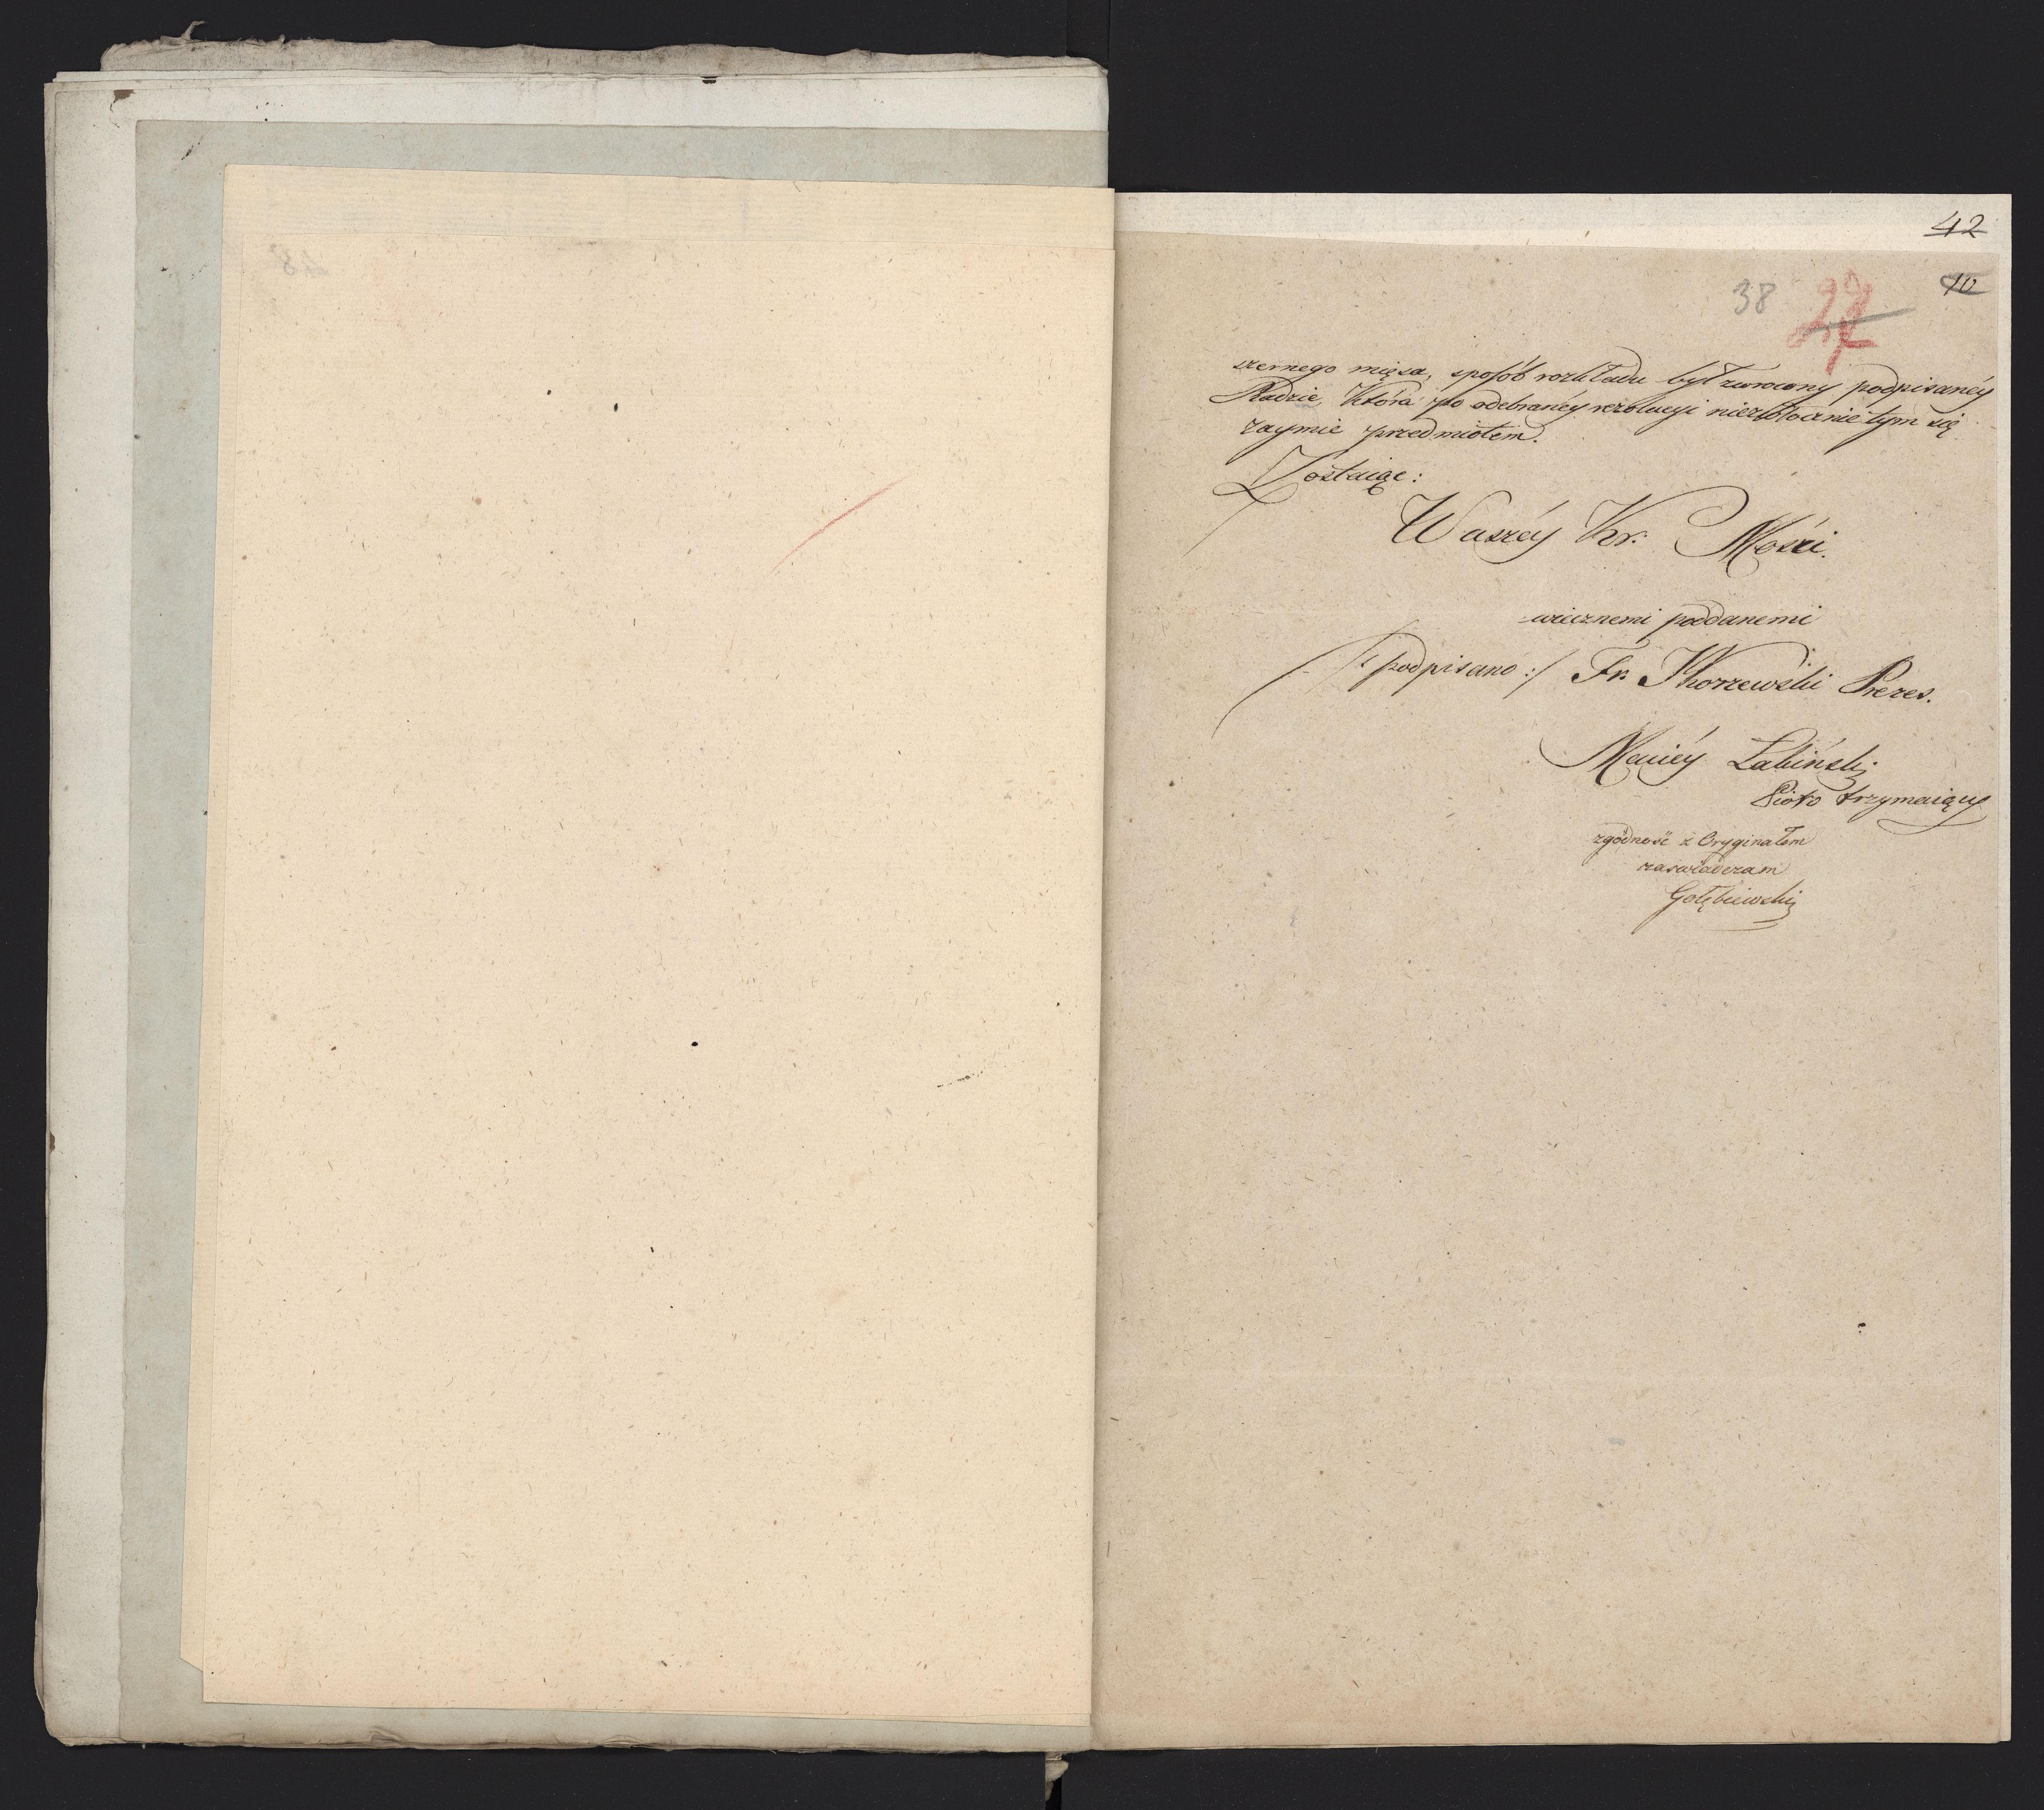 42
10
38 27
szernego mięsa, sposób rozkładu był zwrocony podpisanéy
Radzie, Która po odebranéy rezolucyi niezwłocznie tym się
zaymie przedmiotem.
Zostaiąc:
Waszéy Kr. Mości.
wiecznemi poddanemi
/: podpisano :/ Fr. Skorzewski Prezes.
Maciéy Łabiński
Pióro trzymaiący
zgodność z Oryginałem
zaswiadczam
Gołębiewski